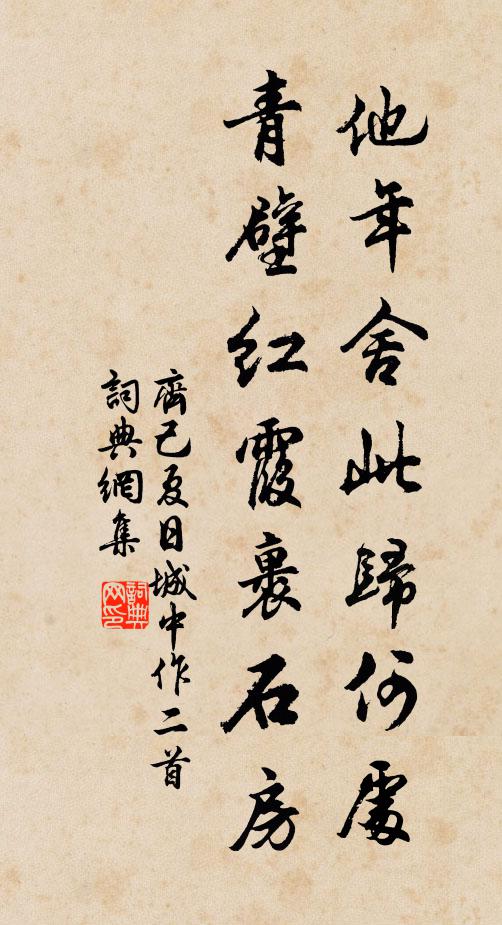 他年舍此歸何處
青壁紅霞裹石房
齊己夏日城中作二首
詞典網集
詞典网印